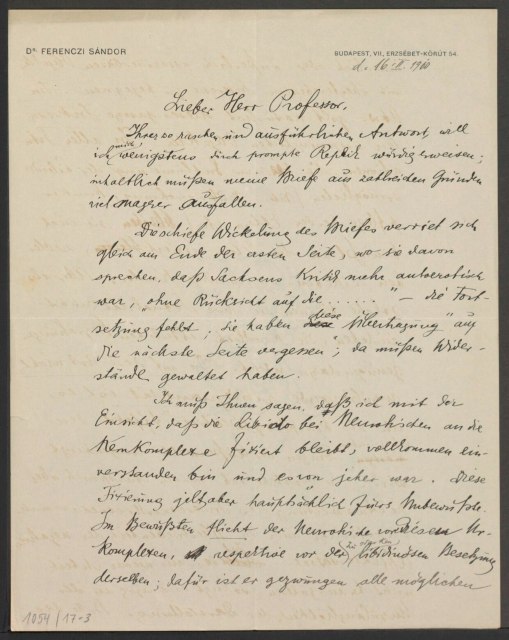 DR. FERENCZI SÁNDOR
BUDAPEST, VII., ERZSÉBET-KÖRÚT 54.
d. 16. II. 1910
Lieber Herr Professor,
Ihrer so raschen und ausführlichen Antwort will
ich mich wenigstens durch prompte Replik würdig erweisen;
inhaltlich müßen meine Briefe aus zahlreichen Gründen
viel magerer ausfallen.
Die schiefe Wickelung des Briefes verriet sich
gleich am Ende der ersten Seite, wo sie davon
sprechen, daß Sachsens Kritik mehr autoerotisch
war, "ohne Rücksicht auf die ......" – die Fort-
setzung fehlt; sie haben diese "Übertragung" auf
die nächste Seite vergessen"; da müßen Wider-
stände gewaltet haben.
Ich muß Ihnen sagen, daß ich mit der
Einsicht, daß die Libido bei Neurotischen an die
Kernkomplexe fixiert bleibt, vollkommen ein-
verstanden bin und es von jeher war. Diese
Fixierung gilt aber hauptsächlich fürs Unbewußte.
Im Bewußten flieht der Neurotische vor diesen Ur-
Komplexen, respektive vor der zu offenen libidinösen Besetzung
derselben; dafür ist er gezwungen alle möglichen
1054/17-3